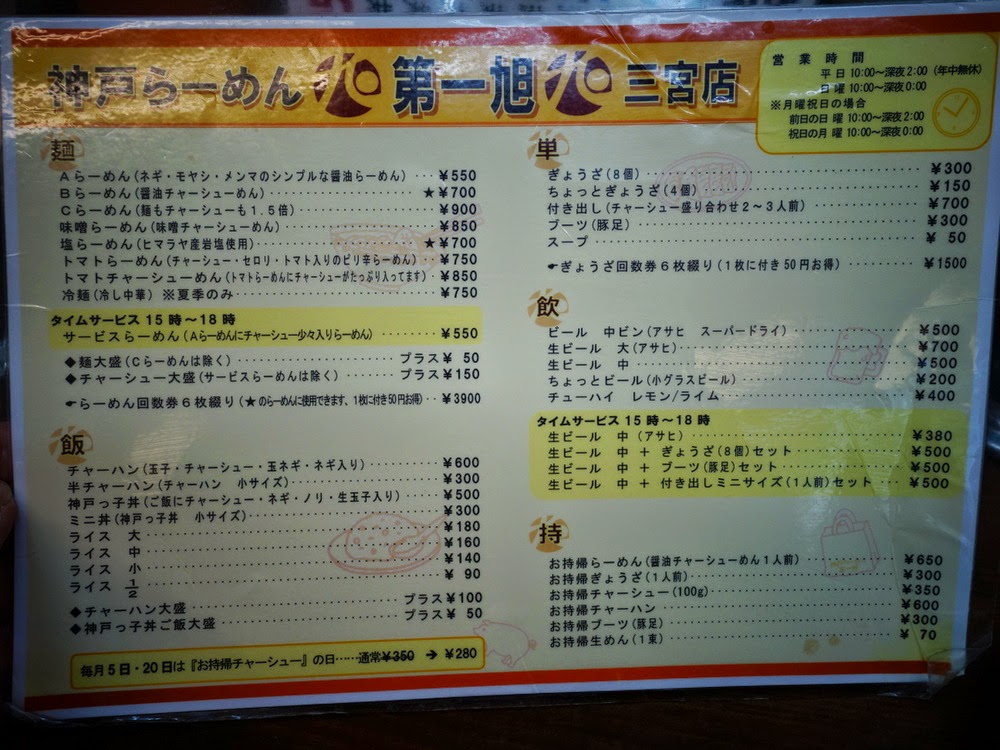 神戸らーめん 第一旭 三宮店
営業時間
平日 10:00〜深夜2:00 (年中無休)
日曜 10:00〜深夜0:00
※月曜祝日の場合
前日の日曜 10:00〜深夜2:00
祝日の月曜 10:00〜深夜0:00
麺
Aらーめん(ネギ・モヤシ・メンマのシンプルな醤油らーめん)‥‥¥550
Bらーめん(醤油チャーシューめん)‥‥★¥700
Cらーめん(麺もチャーシューも1.5倍)‥‥¥900
味噌らーめん(味噌チャーシューめん)‥‥¥850
塩らーめん(ヒマラヤ産岩塩使用)‥‥★¥700
トマトらーめん(チャーシュー・セロリ・トマト入りのピリ辛らーめん)‥‥¥750
トマトチャーシューめん(トマトらーめんにチャーシューがたっぷり入ってます)‥¥850
冷麺(冷し中華) ※夏季のみ‥‥¥750
タイムサービス 15時〜18時
サービスらーめん(Aらーめんにチャーシュー少々入りらーめん)‥‥¥550
◆麺大盛(Cらーめんは除く)‥‥プラス¥ 50
◆チャーシュー大盛(サービスらーめんは除く)‥‥プラス¥150
☛らーめん回数券6枚綴り(★のらーめんに使用できます、1枚に付き50円お得)‥‥¥3900
飯
チャーハン(玉子・チャーシュー・玉ネギ・ネギ入り)‥‥¥600
半チャーハン(チャーハン 小サイズ)‥‥¥300
神戸っ子丼(ご飯にチャーシュー・ネギ・ノリ・生玉子入り)‥‥¥500
ミニ丼(神戸っ子丼 小サイズ)‥‥¥300
ライス 大‥‥¥180
ライス 中‥‥¥160
ライス 小‥‥¥140
ライス 1/2‥‥¥ 90
◆チャーハン大盛‥‥プラス¥100
◆神戸っ子丼ご飯大盛‥‥プラス¥ 50
毎月5日・20日は『お持帰チャーシュー』の日……通常¥350 → ¥280
単
ぎょうざ(8個)‥‥¥300
ちょっとぎょうざ(4個)‥‥¥150
付き出し(チャーシュー盛り合わせ2〜3人前)‥‥¥700
ブーツ(豚足)‥‥¥300
スープ‥‥¥ 50
☛ぎょうざ回数券6枚綴り(1枚に付き50円お得)‥‥¥1500
飲
ビール 中ビン(アサヒ スーパードライ)‥‥¥500
生ビール 大(アサヒ)‥‥¥700
生ビール 中‥‥¥500
ちょっとビール(小グラスビール)‥‥¥200
チューハイ レモン/ライム‥‥¥400
タイムサービス 15時〜18時
生ビール 中(アサヒ)‥‥¥380
生ビール 中 + ぎょうざ(8個)セット‥‥¥500
生ビール 中 + ブーツ(豚足)セット‥‥¥500
生ビール 中 + 付き出しミニサイズ(1人前)セット‥‥¥500
持
お持帰らーめん(醤油チャーシューめん1人前)‥‥¥650
お持帰ぎょうざ(1人前)‥‥¥300
お持帰チャーシュー(100g)‥‥¥350
お持帰チャーハン‥‥¥600
お持帰ブーツ(豚足)‥‥¥300
お持帰生めん(1束)‥‥¥ 70